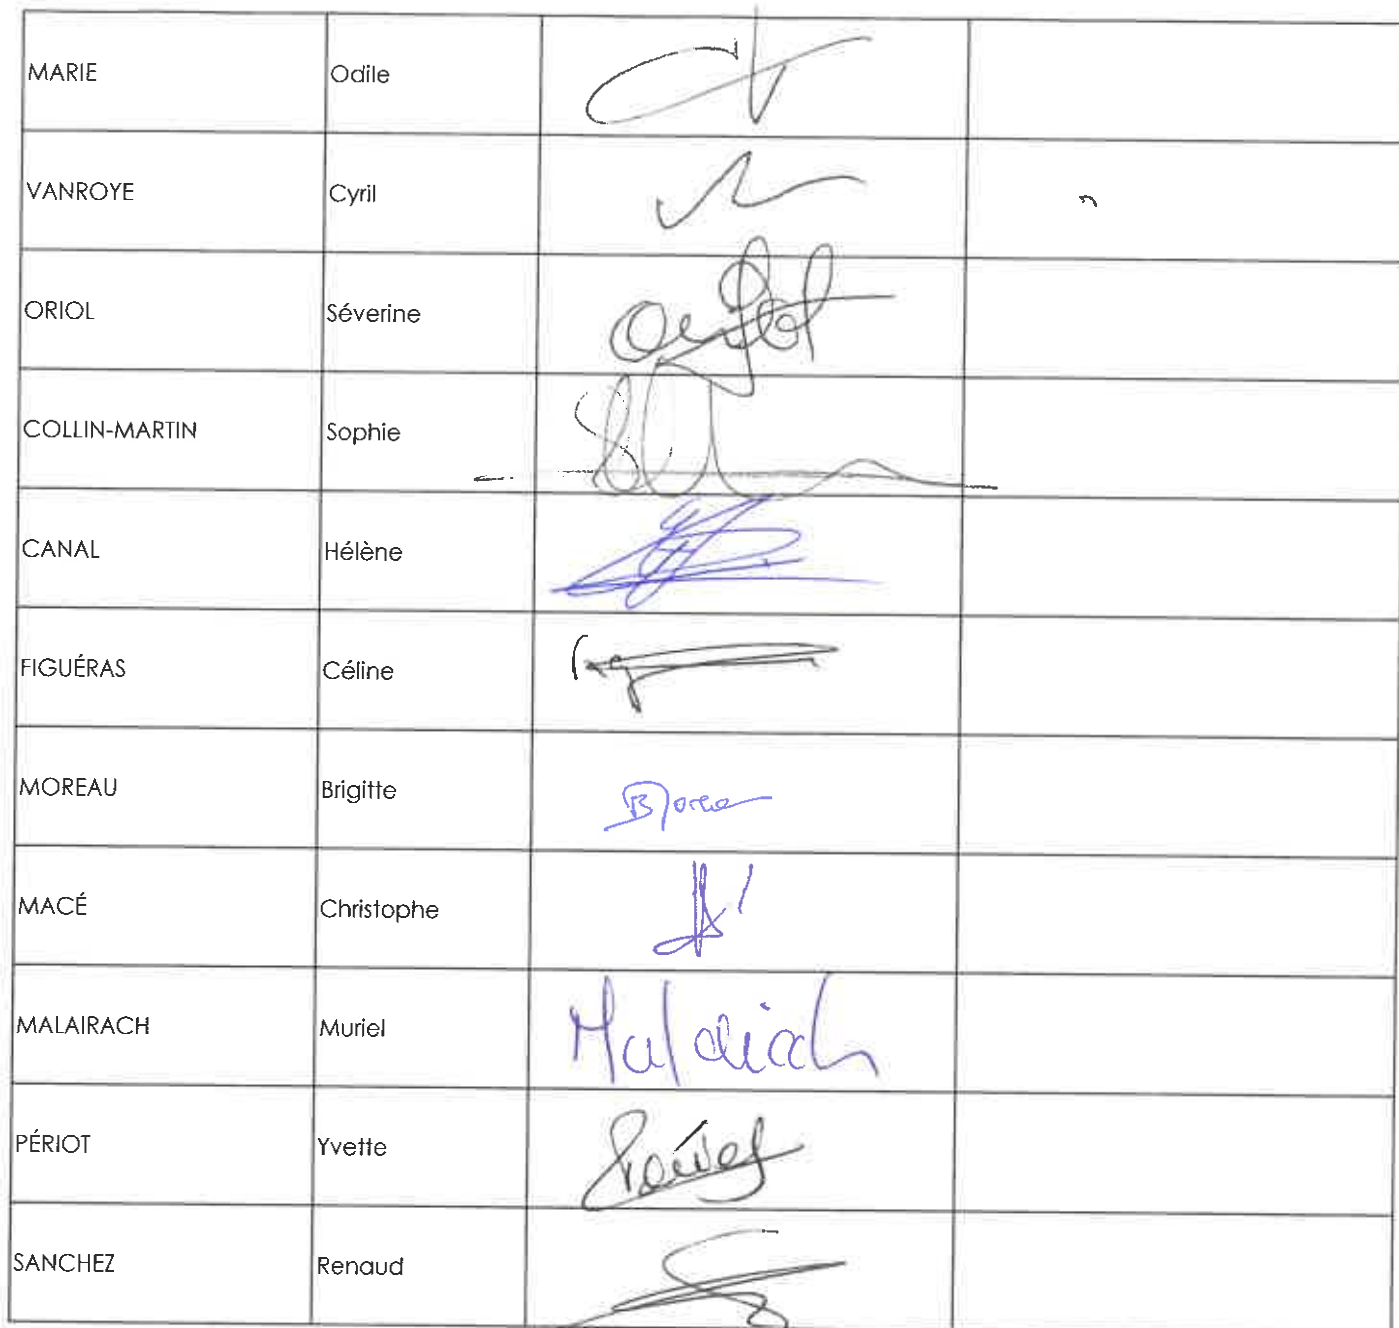 MARIE Odile
VANROYE Cyril
ORIOL Séverine
COLLIN-MARTIN Sophie
CANAL Hélène
FIGUÉRAS Céline
MOREAU Brigitte
MACÉ Christophe
MALAIRACH Muriel Malairach
PÉRIOT Yvette
SANCHEZ Renaud